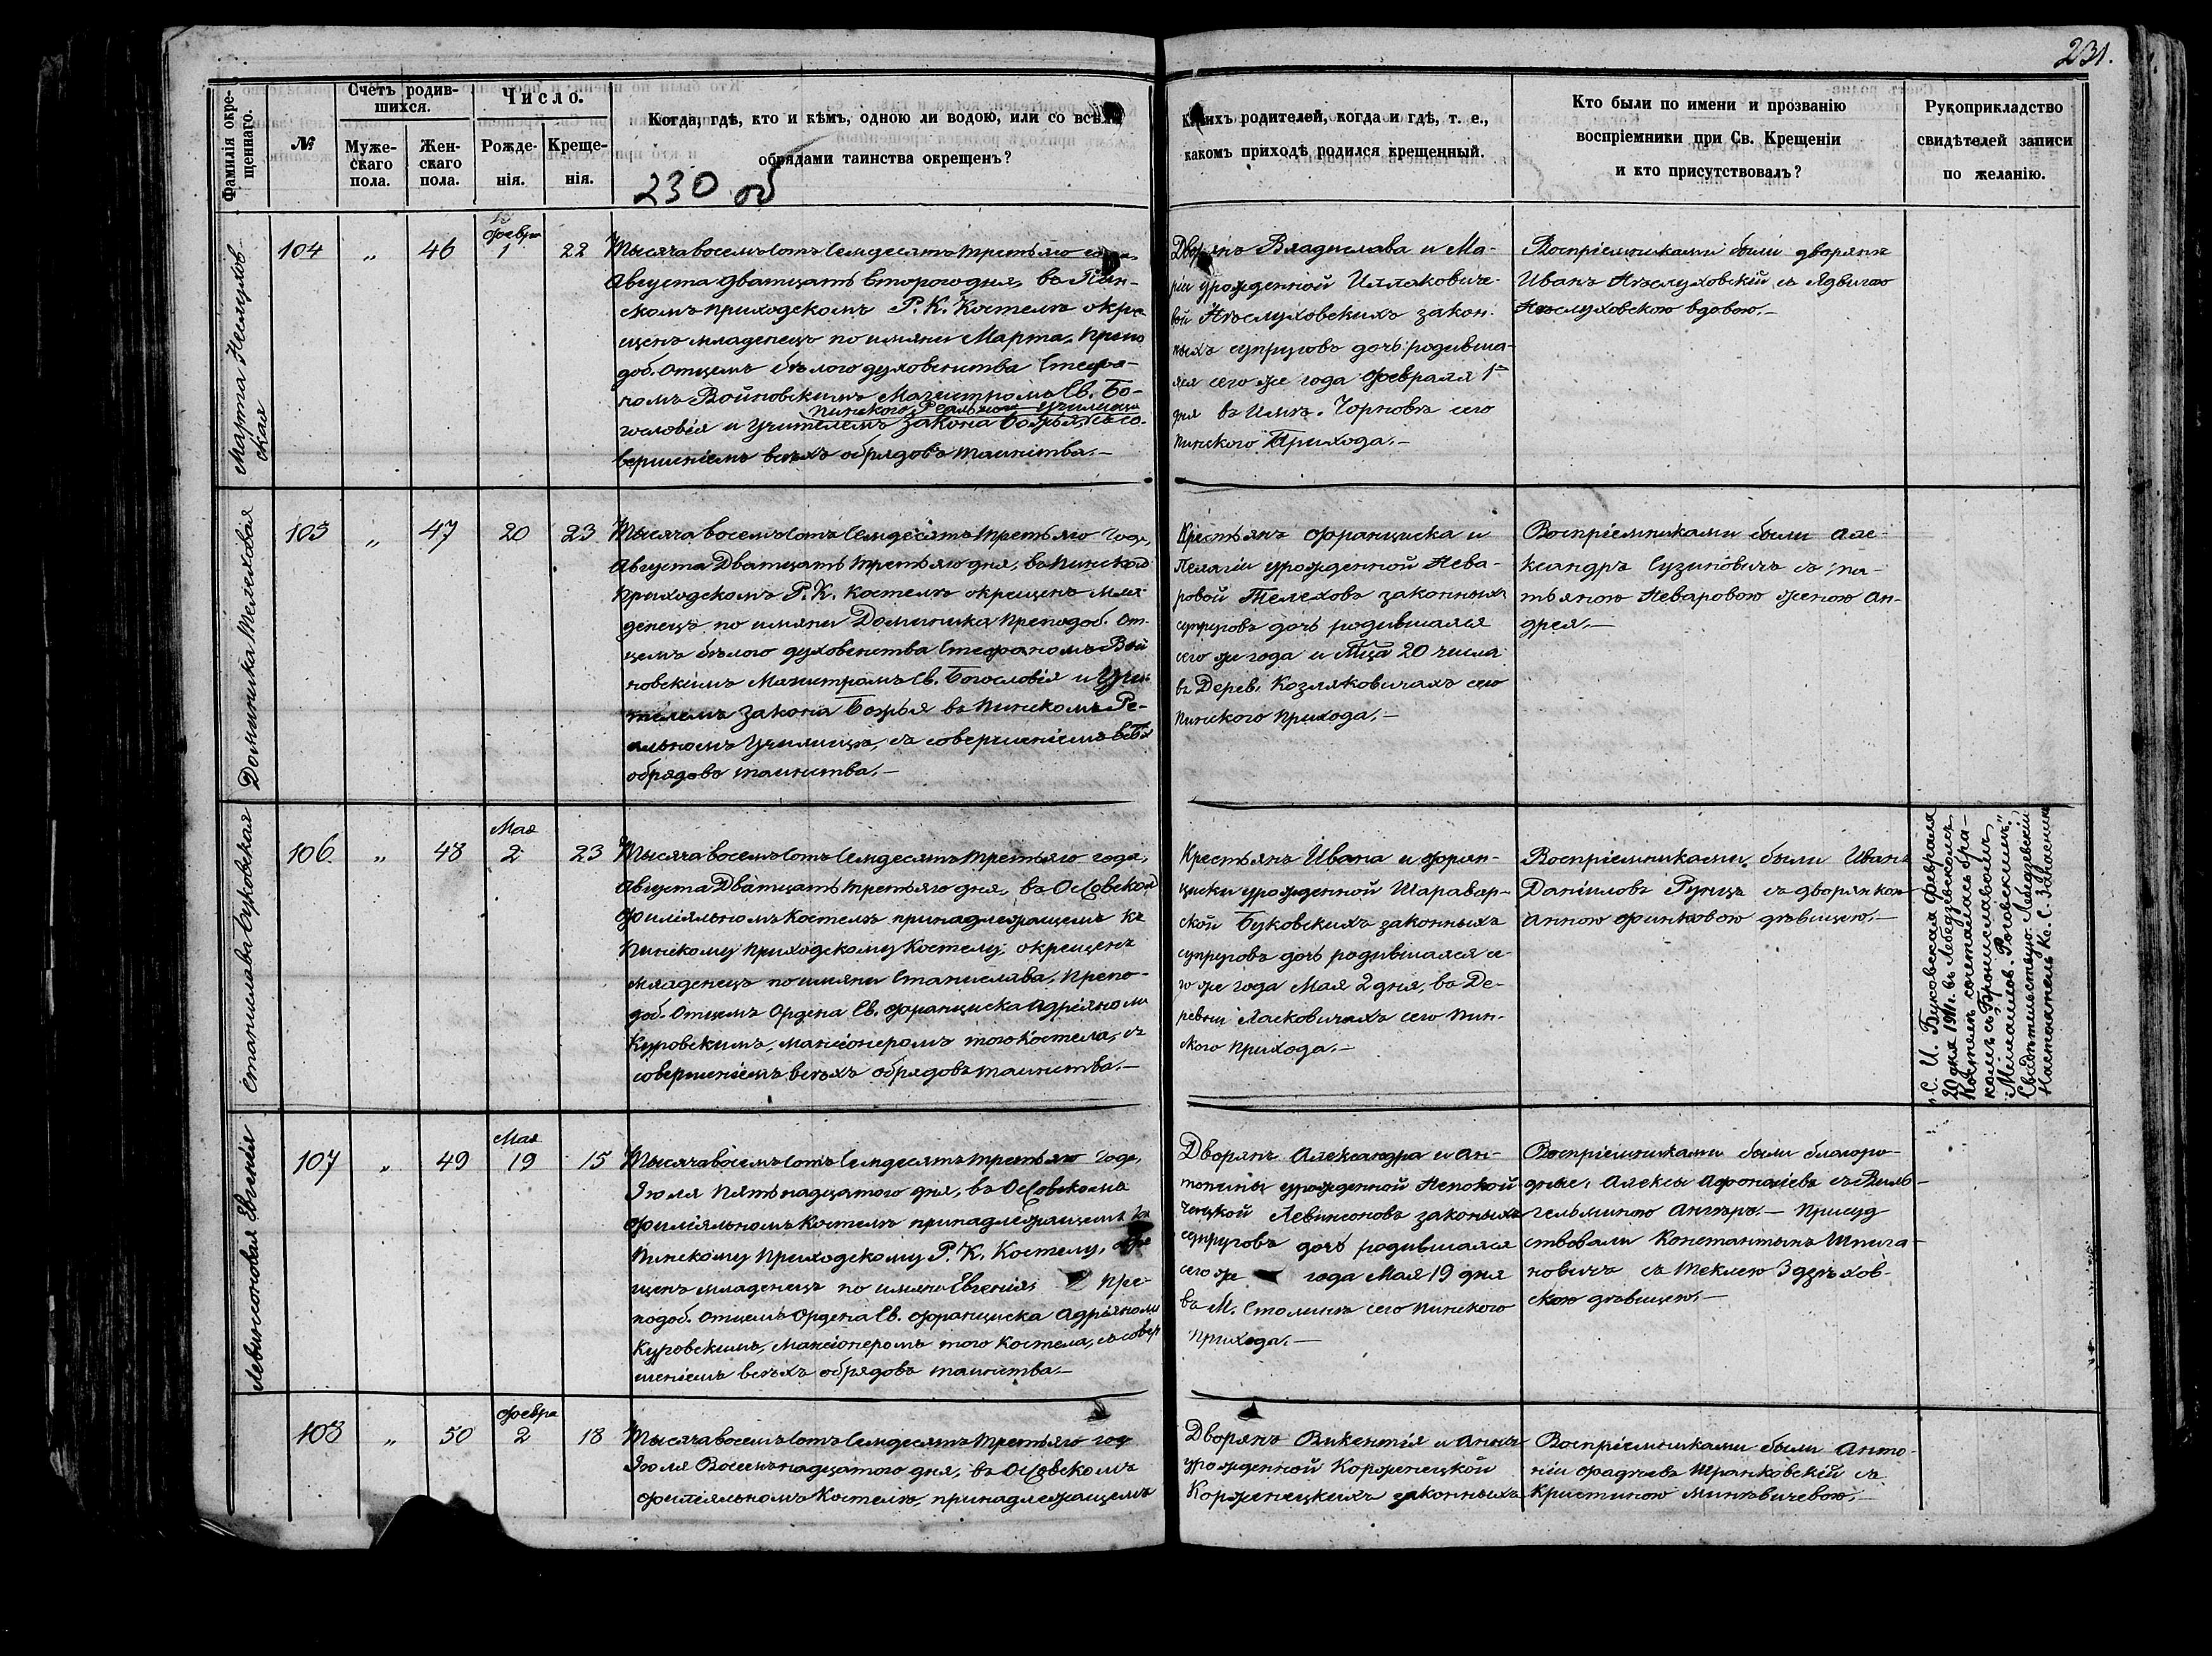 231.
Фамилія окре-
щеннаго.
№
Счетъ родив-
шихся.
Муже-
скаго
пола.
Жен-
скаго
пола.
Число.
Рожде-
нія.
Креще-
нія.
Когда, гдѣ, кто и кѣмъ, одною ли водою, или со всѣми
обрядами таинства окрещенъ?
230 об
Какихъ родителей, когда и гдѣ, т. е.,
какомъ приходѣ родился крещенный.
Кто были по имени и прозванію
воспріемники при Св. Крещеніи
и кто присутствовалъ?
Рукоприкладство
свидѣтелей записи
по желанію.
Марта Неслухов
ская
104 „ 46
Февра
1
22
Тысяча восемьсотъ семдесятъ третьяго года,
Августа двадцать второго дня, въ Пин-
скомъ приходскомъ Р. К. Костелѣ окре
щенъ младенецъ по имяни Марта, препо
доб. отцемъ бѣлого духовенства Стефа-
номъ Войновскимъ Магистромъ Св. Бо-
Пинского Реального училища
гословія и учителемъ закона Божья, съ со-
вершеніемъ всѣхъ обрядовъ таинства.—
Дворянъ Владислава и Ма-
ріи урожденной
вой Нѣслуховскихъ закон-
ныхъ супруговъ дочь родивша-
яся сего же года Февраля 1го
дня въ Имѣ. Чорновѣ сего
пинского Прихода.—
Воспріемниками были дворянъ
Иванъ Нѣслуховскій съ Ядвигою
Нѣслуховскою вдовою.—
Доминика Телеховая
105 „ 47 20 23
Тысяча восемьсотъ семдесятъ третьяго года,
Августа Двадцать третьяго дня, въ Пинском
приходскомъ Р. К. Костелѣ окрещенъ мла-
денецъ по имяни Доминика, преподоб. от-
цемъ бѣлого духовенства Стефаномъ Вой
новскимъ Магистромъ Св. Богословія и Учи-
телемъ Закона Божья въ Пинскомъ Ре-
альномъ Училищѣ, съ совершеніемъ всѣх
обрядовъ таинства.—
Крестьянъ Франциска и
Пелагіи урожденной Нева-
ровой Телеховъ законныхъ
супруговъ дочь родившаяся
сего же года и Мца 20 числа
въ Дерев. Козляковичахъ сего
пинского прихода.—
Воспріемниками были Але-
ксандръ Сузиновичъ съ Та-
тьяною Неваровою женою Ан-
дрея.—
Станислава Буковская
106 „ 48
Мая
2
23
Тысяча восемьсотъ семдесятъ третьяго года,
Августа Двадцать третьяго дня, въ Осовском
филіяльномъ Костелѣ принадлежащемъ къ
Пинскому приходскому Костелу, окрещенъ
младенецъ по имяни Станислава, препо-
доб. отцемъ Ордена Св. Франциска Адріяномъ
Куровскимъ, мансіонеромъ того Костела, съ
совершеніемъ всѣхъ обрядовъ таинства.—
Крестьянъ Ивана и Фран-
циски урожденной Шаравар-
ской Буковскихъ законныхъ
супруговъ дочь родившаяся се-
го же года Мая 2 дня, въ Де-
ревни Ласковичахъ сего Пин-
ского прихода.—
Воспріемниками были Иванъ
Даніиловъ Рунцъ съ дворянкою
Анною Финьковою дѣвицею.—
„С. И. Буковская февраля
20 дня 1911г. въ Лебедзевскомъ
Костелѣ сочеталась бра-
комъ съ Брониславомъ
Михаилов. Роговскимъ".
Свидѣтельствую. Лебедзевскій
Настоятель Кс. С.
Левинсоновая Евгенія
107 „ 49
Мая
19
15
Тысяча восемьсотъ семдесятъ третьяго года,
Іюля Пятьнадцатого дня, въ Осовскомъ
филіяльномъ Костелѣ принадлежащемъ къ
Пинскому Приходскому Р. К. Костелу, окре
щенъ младенецъ по имяни Евгенія, пре-
подоб. отцемъ Ордена Св. Франциска Адріяномъ
Куровскимъ, мансіонеромъ того Костела, съ совер
шеніемъ всѣхъ обрядовъ таинства.—
Дворянъ Александра и Ан-
тонины урожденной Непокой
чицкой Левинсоновъ законыхъ
супруговъ дочь родившаяся
сего же года Мая 19 дня
въ М. Столинѣ сего пинского
прихода.—
Воспріемниками были благоро-
дные, Алексы Афонасіевъ съ Виль-
гельминою — Присуд
ствовали Константынъ Шпига-
новичъ съ Теклею Здзѣхов-
скою дѣвицею.—
108 „ 50
Февра
2
18
Тысяча восемьсотъ семдесятъ третьяго год
Іюля Восемьнадцатого дня, въ Осовскомъ
филіяльномъ Костелѣ, принадлежащемъ
Дворянъ Викентія и Анны
урожденной Корженецкой
Корженецкихъ законныхъ
Воспріемниками были Анто-
ній Фадѣевъ Транковскій съ
Кристиною Минкевичевою.—